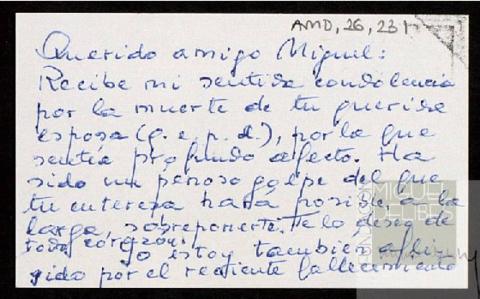 AMD, 26, 231
Querido amigo Miguel:
Recibe mi sentida condolencia
por la muerte de tu querida
esposa (q. e. p. d.), por la que
sentía profundo afecto. Ha
sido un penoso golpe del que
tu entereza hará posible, a la
larga, sobreponerte. Te lo deseo de
todo corazón.
Yo estoy tambien afli-
gido por el reciente fallecimiento
FUNDACIÓN
MIGUEL
DELIBES